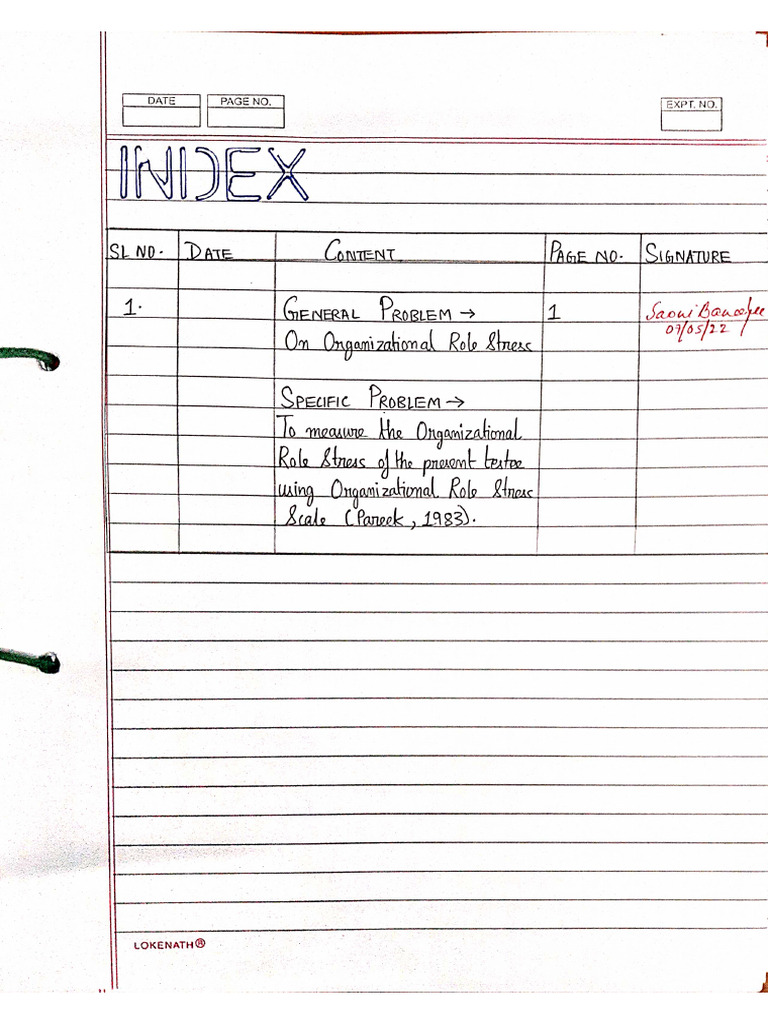 DATE PAGE NO. EXPT. NO.
INDEX
SL NO. DATE CONTENT PAGE NO. SIGNATURE
1. GENERAL PROBLEM → 1 Saoni Banerjee
07/05/22
On Organizational Role Stress
SPECIFIC PROBLEM →
To measure the Organizational
Role Stress of the present testee
using Organizational Role Stress
Scale (Pareek, 1983).
LOKENATH®